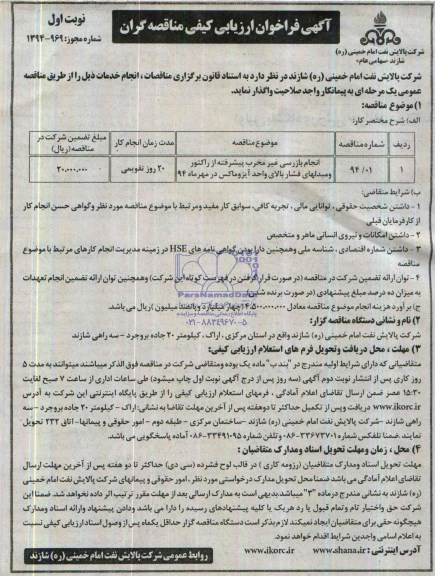 نوبت اول
آگهی فراخوان ارزیابی کیفی مناقصه گران
شرکت پالایش نفت امام خمینی (ره)
شازند -سهامی عام-
شماره مجوز: ۹۶۹-۱۳۹۴
شرکت پالایش نفت امام خمینی (ره) شازند در نظر دارد به استناد قانون برگزاری مناقصات ، انجام خدمات ذیل را از طریق مناقصه
عمومی یک مرحله ای به پیمانکار واجد صلاحیت واگذار نماید.
۱) موضوع مناقصه:
الف) شرح مختصر کار:
ردیف شماره مناقصه موضوع مناقصه مدت زمان انجام کار مبلغ تضمین شرکت در مناقصه (ریال)
۱ ۹۴/۰۱ انجام بازرسی غیر مخرب پیشرفته از راکتور ومبدلهای فشار بالای واحد آیزوماکس در مهرماه ۹۴ ۲۰ روز تقویمی
ب) شرایط متقاضی:
۱ - داشتن شخصیت حقوقی ، توانایی مالی ، تجربه کافی، سوابق کار مفید ومرتبط با موضوع مناقصه مورد نظر وگواهی حسن انجام کار
از کارفرمایان قبلی
۲ - داشتن امکانات و نیروی انسانی ماهر و متخصص
۳ - داشتن شماره اقتصادی ، شناسه ملی وهمچنین دارا بودن گواهی نامه های HSE در زمینه مدیریت انجام کارهای مرتبط با موضوع
مناقصه
۴ - توان ارائه تضمین شرکت در مناقصه (در صورت قرار گرفتن در فهرست کوتاه این شرکت) وهمچنین توان ارائه تضمین انجام تعهدات
به میزان ده درصد مبلغ پیشنهادی (در صورت برنده شدن)
ج) برآورد هزینه انجام موضوع مناقصه معادل (چهار میلیارد و پانصد میلیون) ریال می باشد.
۲) نام و نشانی دستگاه مناقصه گزار:
شرکت پالایش نفت امام خمینی (ره) شازند واقع در استان مرکزی ، اراک ، کیلومتر ۲۰ جاده بروجرد - سه راهی شازند
۳) مهلت ، محل دریافت وتحویل فرم های استعلام ارزیابی کیفی:
متقاضیانی که دارای شرایط اولیه مندرج در "بند ب" ماده یک بوده ومتقاضی شرکت در مناقصه فوق الذکر میباشند میتوانند به مدت ۵
روز کاری پس از انتشار نوبت دوم آگهی (سه روز پس از درج آگهی نوبت اول چاپ میشود) طی ساعات اداری از ساعت ۷ صبح لغایت
۱۵:۳۰ عصر ضمن ارسال تقاضای اعلام آمادگی ، فرمهای استعلام ارزیابی کیفی را از طریق پایگاه اینترنتی این شرکت به آدرس
www.ikorc.ir دریافت وپس از تکمیل حداکثر تا دوهفته پس از آخرین مهلت تقاضا به نشانی: اراک - کیلومتر ۲۰ جاده بروجرد - سه
راهی شازند -شرکت پالایش نفت امام خمینی (ره) شازند -ساختمان مرکزی - طبقه دوم - امور حقوقی و پیمانها-اتاق ۲۲۲ تحویل
نمایند. ضمنا تلفکس شماره ۳۳۶۷۳۷۰۱-۰۸۶ وتلفن شماره ۳۳۴۹۱۰۹۵-۰۸۶ آماده پاسخگویی می باشد.
۴) محل ، زمان ومهلت تحویل اسناد ومدارک متقاضیان :
مهلت تحویل اسناد ومدارک متقاضیان (رزومه کاری ) در قالب لوح فشرده (سی دی) حداکثر تا دو هفته پس از آخرین مهلت ارسال
تقاضای اعلام آمادگی می باشد ضمنا محل تحویل مدارک درخواستی مورد نظر ، امور حقوقی و پیمانهای شرکت پالایش نفت امام خمینی
(ره) شازند به نشانی مندرج در ماده "۳" میباشد بدیهی است به مدارک ارسالی بعد از مهلت مقرر ترتیب اثر داده نخواهد شد. ضمنا این
شرکت حق واختیار تام وتمام قبول یا رد هر یک یا کلیه پیشنهادهای رسیده را دارا می باشد ودادن پیشنهاد وارائه اسناد ومدارک
هیچگونه حقی برای متقاضیان ایجاد نمیکند. لازم بذکر است دستگاه مناقصه گزار حداقل یکماه پس از وصول اسناد ارزیابی کیفی نسبت
به اعلام اسامی واجدین شرایط اقدام خواهد نمود.
آدرس اینترنتی : www.shana.ir www.ikorc.ir
روابط عمومی شرکت پالایش نفت امام خمینی (ره) شازند
ParsNamadData
پایگاه اطلاع رسانی مناقصه و مزایده
۰۲۱-۸۸۳۴۹۶۷۰-۵